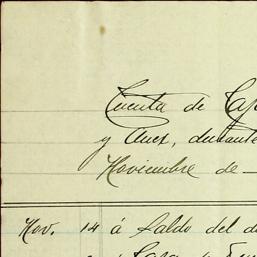 Cuenta de
y Anex, durante
Noviembre de
Nov. 14 á Saldo del d